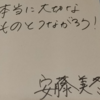 本当に大切な
ものとつながろう!
安藤美